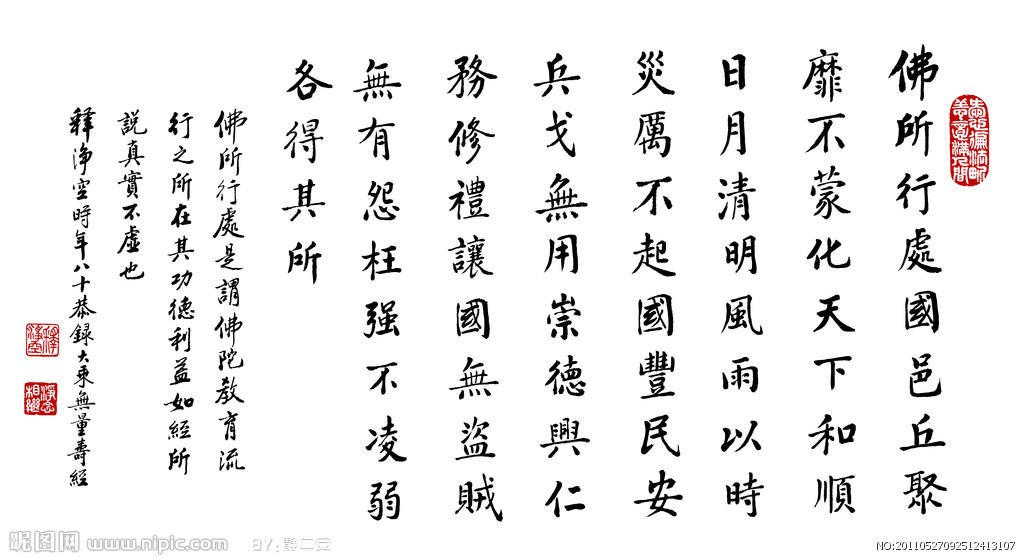 佛所行處國邑丘聚
靡不蒙化天下和順
日月清明風雨以時
災厲不起國豐民安
兵戈無用崇德興仁
務修禮讓國無盜賊
無有怨枉强不凌弱
各得其所
佛所行處是謂佛陀教育流
行之所在其功德利益如經所
説真實不虛也
釋淨空時年八十恭録大乘無量壽經
昵图网 www.nipic.com
BY:靜二安
NO:20110527092512413107